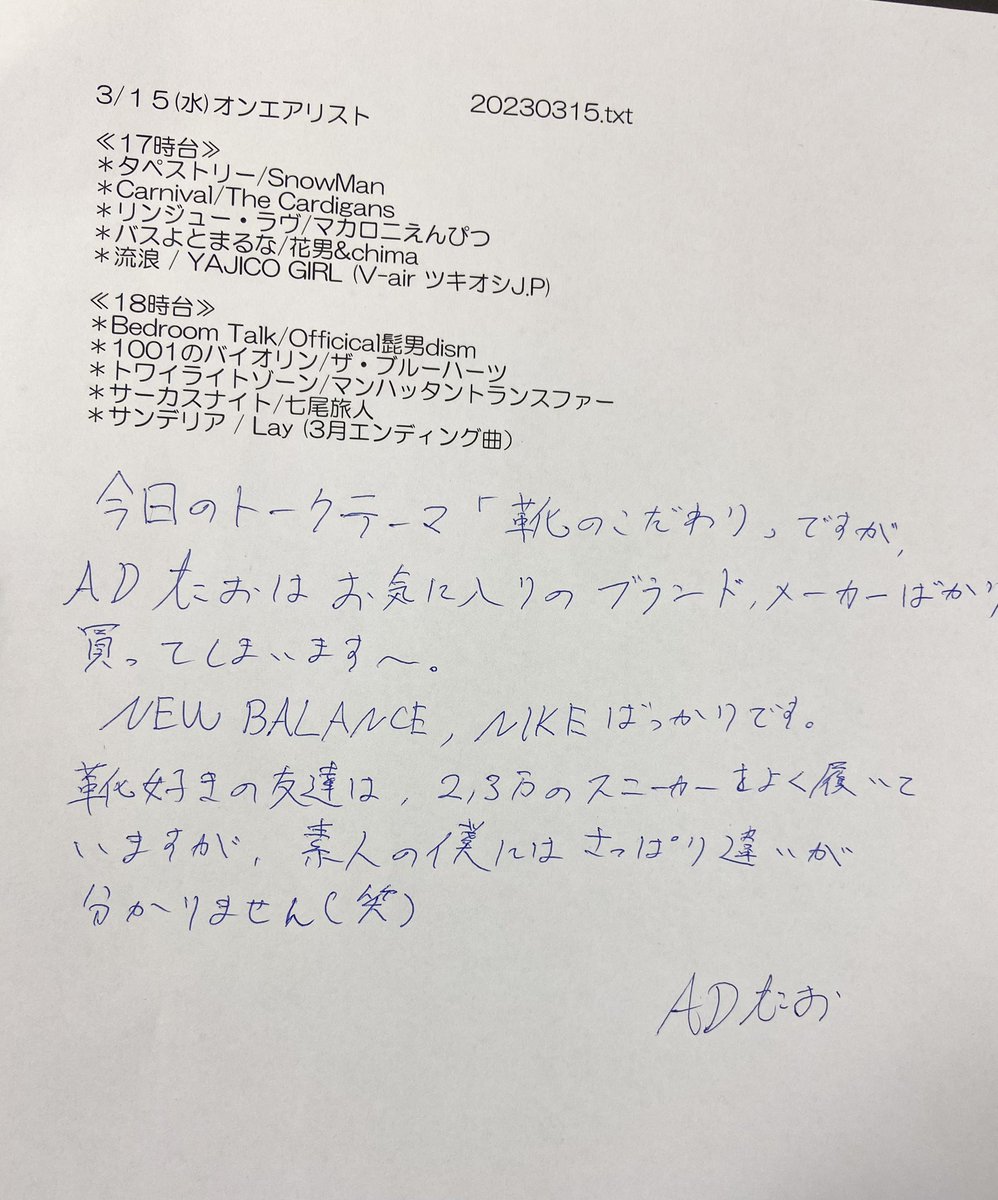 3/15(水)オンエアリスト 20230315.txt
≪17時台≫
＊タペストリー/SnowMan
＊Carnival/The Cardigans
＊リンジュー・ラヴ/マカロニえんぴつ
＊バスよとまるな/花男&chima
＊流浪 / YAJICO GIRL (V-air ツキオシJ.P)
≪18時台≫
＊Bedroom Talk/Officical髭男dism
＊1001のバイオリン/ザ・ブルーハーツ
＊トワイライトゾーン/マンハッタントランスファー
＊サーカスナイト/七尾旅人
＊サンデリア / Lay (3月エンディング曲)
今日のトークテーマ「靴のこだわり」ですが、
ADたおは お気に入りの ブランド、メーカーばかり
買ってしまいます〜。
NEW BALANCE, NIKEばっかりです。
靴好きの友達は、2,3万のスニーカーをよく履いて
いますが、素人の僕にはさっぱり違いが
分かりません(笑)
ADたお